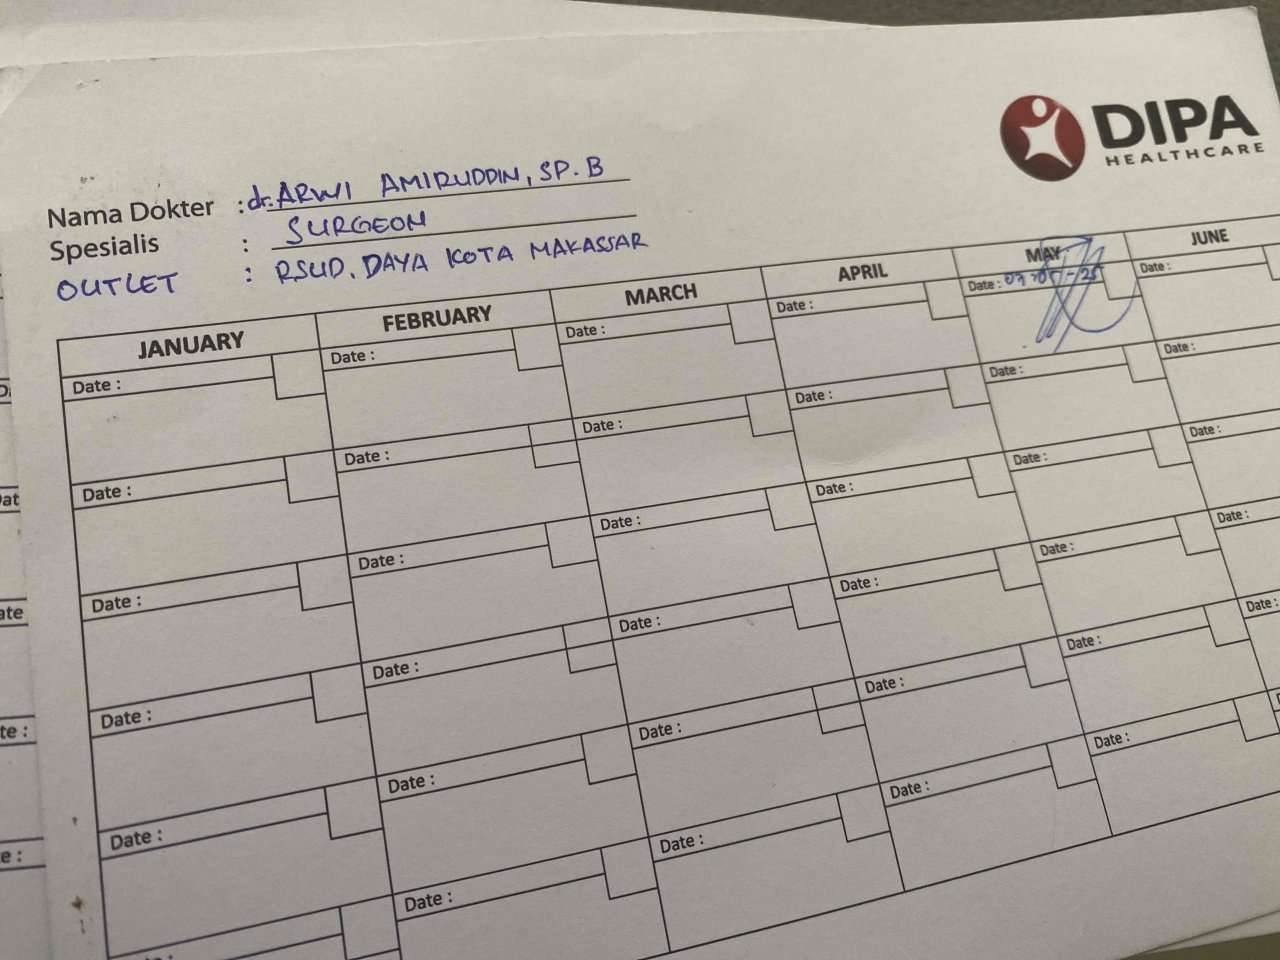 DIPA
HEALTHCARE
Nama Dokter : dr. ARWI AMIRUDDIN, SP. B
Spesialis : SURGEON
OUTLET : RSUD. DAYA KOTA MAKASSAR
JANUARY FEBRUARY MARCH APRIL MAY JUNE
Date : Date : Date : Date : Date : 07-05-25 Date :
Date : Date : Date : Date : Date : Date :
Date : Date : Date : Date : Date : Date :
Date : Date : Date : Date : Date : Date :
Date : Date : Date : Date : Date : Date :
Date : Date : Date : Date : Date :